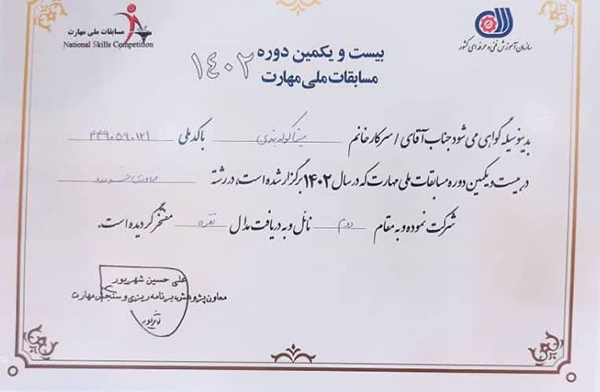 مسابقات ملی مهارت
National Skills Competition
سازمان آموزش فنی و حرفه‌ای کشور
بیست و یکمین دوره
مسابقات ملی مهارت
۱۴۰۲
بدینوسیله گواهی می شود جناب آقای / سرکار خانم با کد ملی ۴۴۹۰۵۹۰۱۲۱
در بیست و یکمین دوره مسابقات ملی مهارت که در سال ۱۴۰۲ برگزار شده است، در رشته
شرکت نموده و به مقام دوم نائل و به دریافت مدال نقره مفتخر گردیده است.
علی حسین شهریور
معاون پژوهش، برنامه ریزی و سنجش مهارت